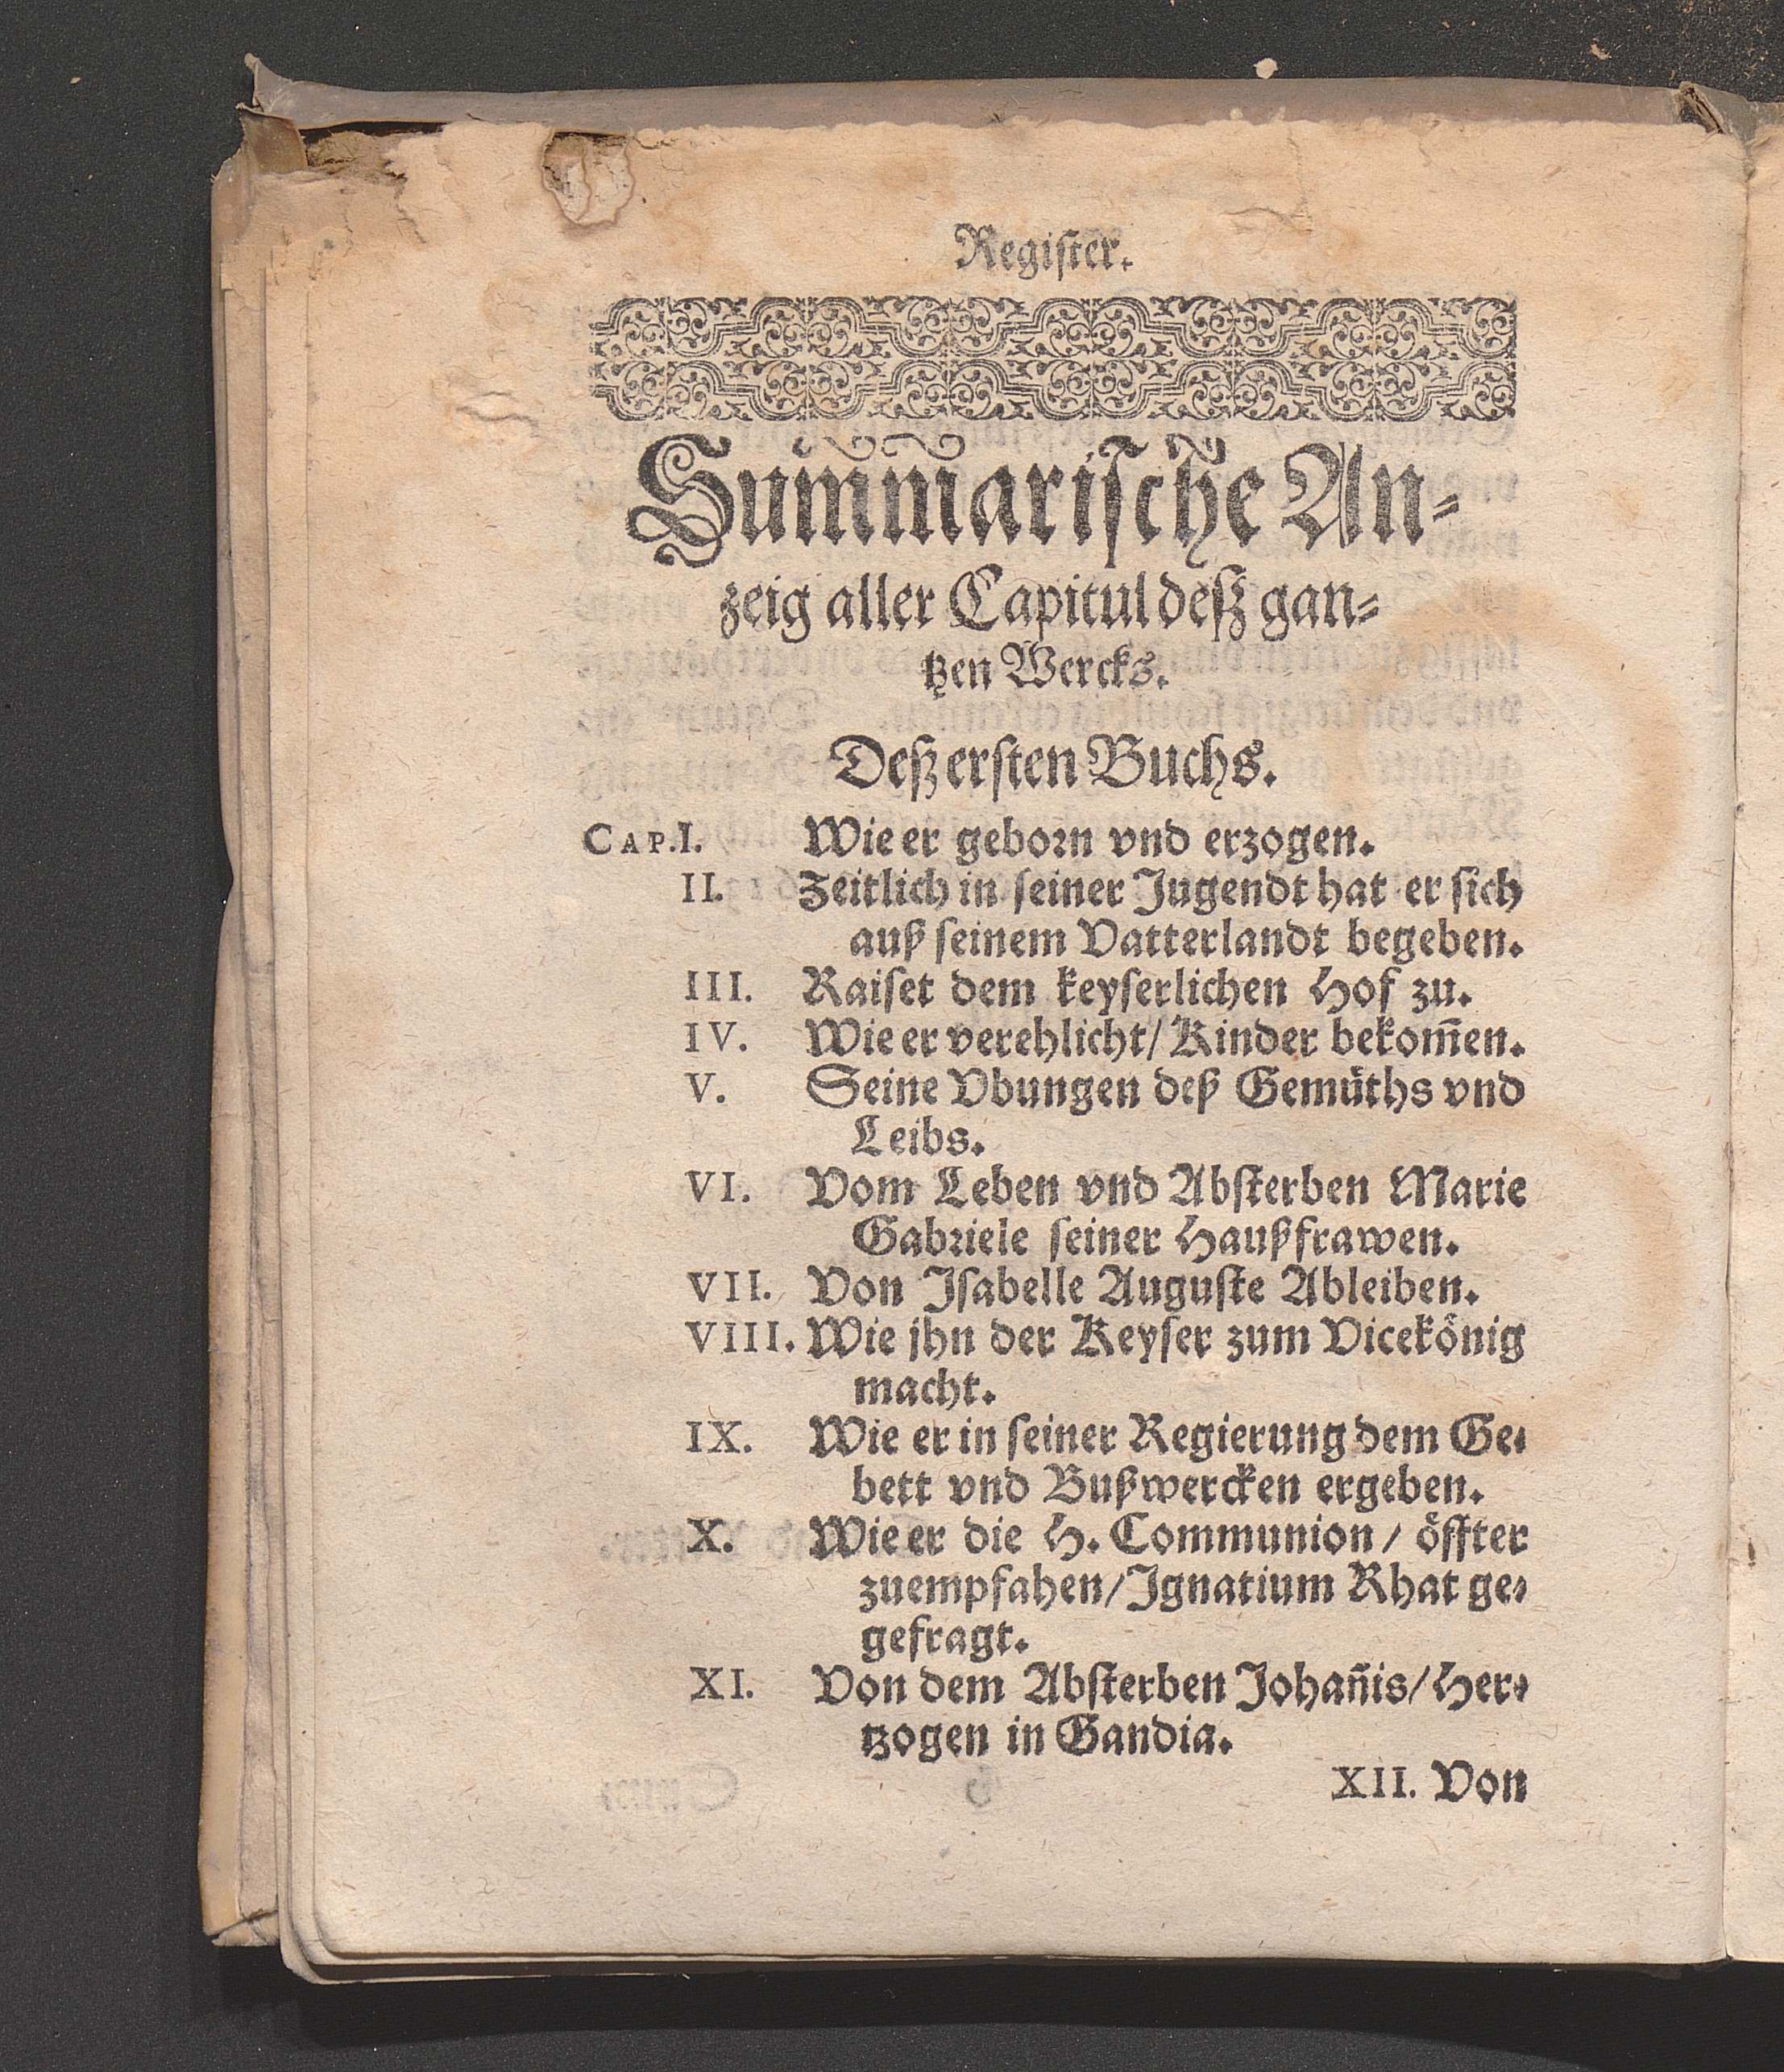 Register.
Sum̃marische An-
zeig aller Capitul deß gan-
tzen Wercks.
Deß ersten Buchs.
CAP.I. Wie er geborn vnd erzogen.
II. Zeitlich in seiner Jugendt hat er sich
auß seinem Vatterlandt begeben.
III. Raiset dem keyserlichen Hof zu.
IV. Wie er verehlicht/ Kinder bekom̃en.
V. Seine Vbungen deß Gemüths vnd
Leibs.
VI. Vom Leben vnd Absterben Marie
Gabriele seiner Haußfrawen.
VII. Von Isabelle Auguste Ableiben.
VIII. Wie jhn der Keyser zum Vicekönig
macht.
IX. Wie er in seiner Regierung dem Ge-
bett vnd Bußwercken ergeben.
X. Wie er die H. Communion/ öffter
zuempfahen/ Ignatium Rhat ge-
gefragt.
XI. Von dem Absterben Johañis/ Her-
tzogen in Gandia.
XII. Von